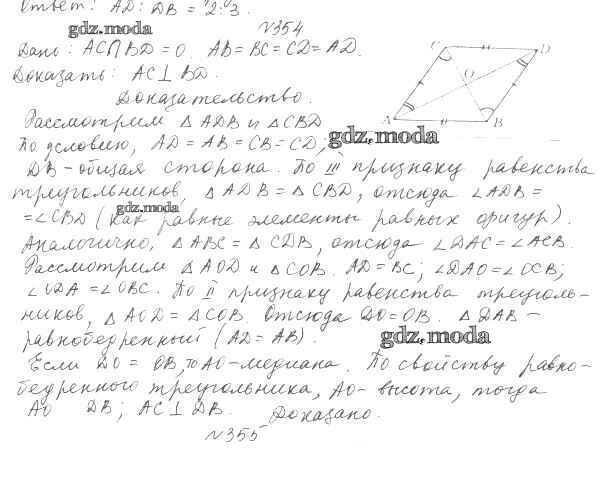 Ответ: AD : DB = 2 : 3.
gdz.moda
№354
Дано: AC∩BD = O. AB = BC = CD = AD.
Доказать: AC⊥BD.
C D
O
A B
Доказательство.
Рассмотрим △ADB и △CBD
По условию, AD = AB = CB = CD;
gdz.moda
DB - общая сторона. По III признаку равенства
треугольников, △ADB = △CBD, отсюда ∠ADB =
gdz.moda
= ∠CBD (как равные элементы равных фигур).
Аналогично, △ABC = △CDB, отсюда ∠DAC = ∠ACB.
Рассмотрим △AOD и △COB. AD = BC; ∠DAO = ∠OCB;
∠ODA = ∠OBC. По II признаку равенства треуголь-
ников, △AOD = △COB. Отсюда DO = OB. △DAB -
равнобедренный (AD = AB).
gdz.moda
Если DO = OB, то AO - медиана. По свойству равно-
бедренного треугольника, AO - высота, тогда
AO DB; AC⊥DB. Доказано.
№355